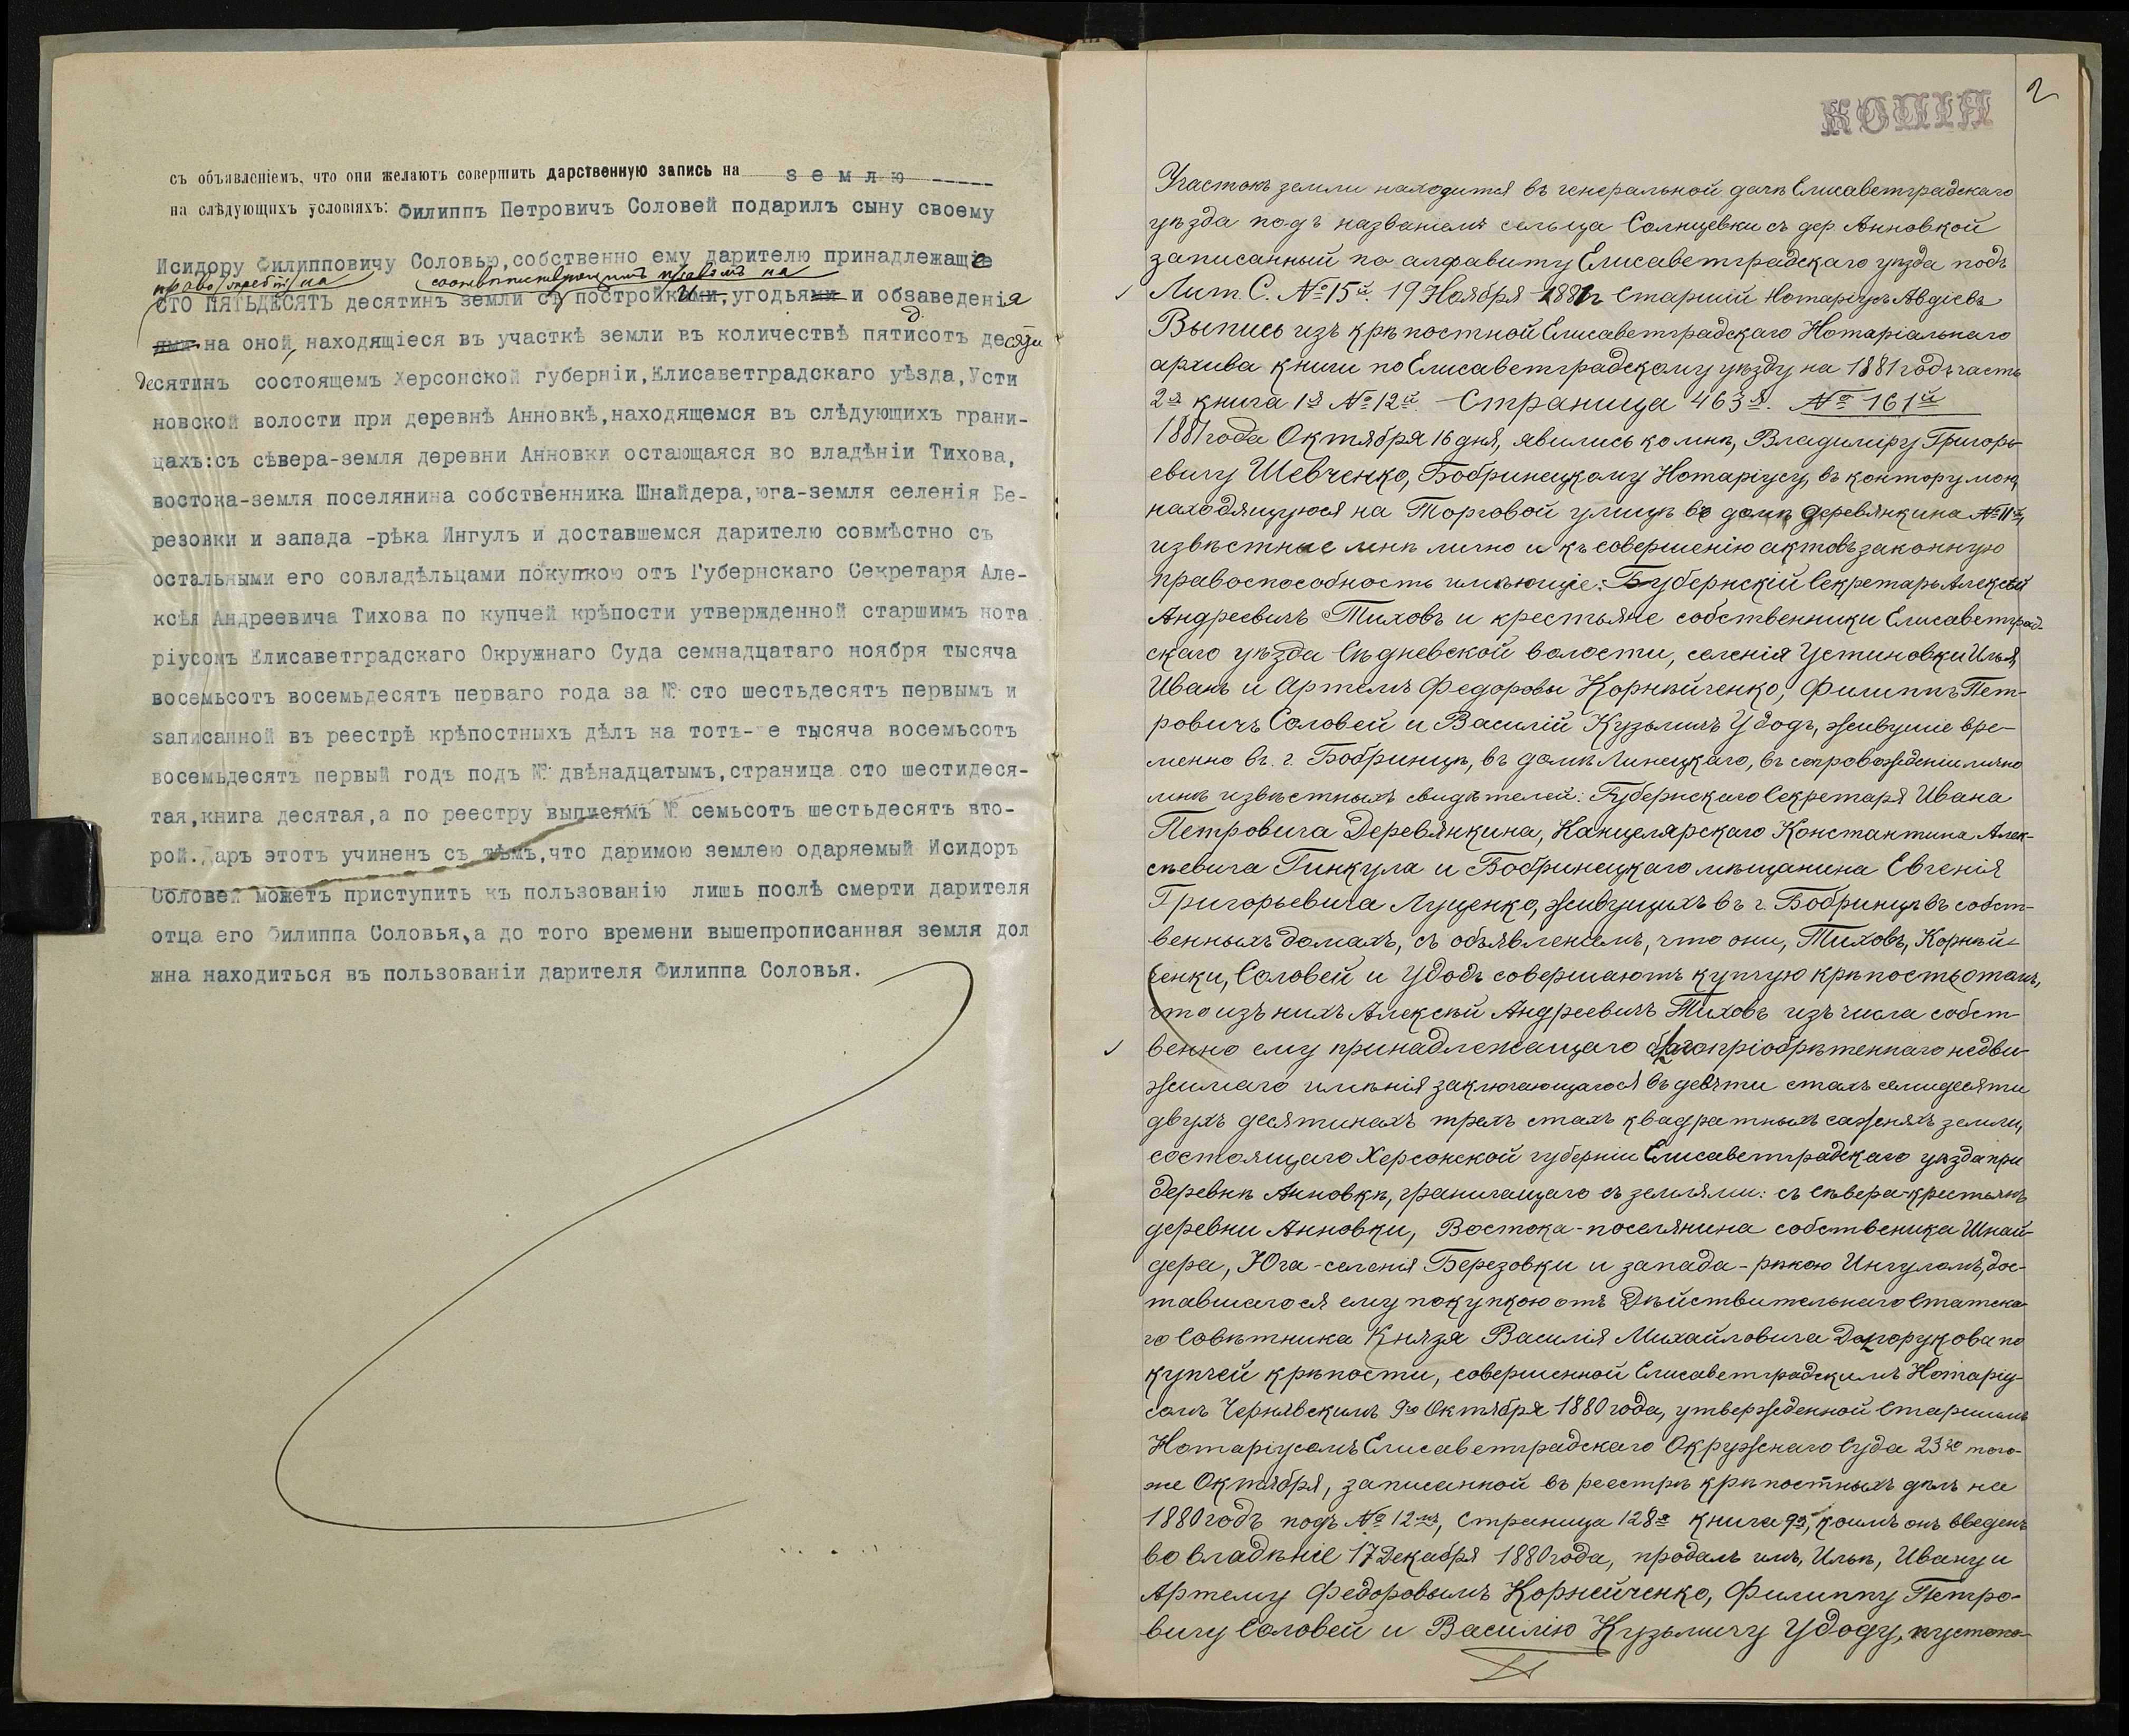 съ объявленіемъ, что они желаютъ совершить дарственную запись на землю
на слѣдующихъ условіяхъ: Филиппъ Петровичъ Соловей подарилъ сыну своему
Исидору Филипповичу Соловью, собственно ему дарителю принадлежащіе
право на соотвѣтствующимъ правомъ на
СТО ПЯТЬДЕСЯТЪ десятинъ земли съ постройками, угодьями и обзаведенія
ями на оной, находящіеся въ участкѣ земли въ количествѣ пятисотъ десяти
десятинъ состоящемъ Херсонской губерніи, Елисаветградскаго уѣзда, Усти
новской волости при деревнѣ Анновкѣ, находящемся въ слѣдующихъ грани-
цахъ: съ сѣвера-земля деревни Анновки остающаяся во владѣніи Тихова,
востока-земля поселянина собственника Шнайдера, юга-земля селенія Бе-
резовки и запада -рѣка Ингулъ и доставшемся дарителю совмѣстно съ
остальными его совладѣльцами покупкою отъ Губернскаго Секретаря Але-
ксѣя Андреевича Тихова по купчей крѣпости утвержденной старшимъ нота
ріусомъ Елисаветградскаго Окружнаго Суда семнадцатаго ноября тысяча
восемьсотъ восемьдесятъ перваго года за № сто шестьдесятъ первымъ и
записанной въ реестрѣ крѣпостныхъ дѣлъ на тотъ-е тысяча восемьсотъ
восемьдесятъ первый годъ подъ № двѣнадцатымъ, страница сто шестидеся-
тая, книга десятая, а по реестру выписямъ № семьсотъ шестьдесятъ вто-
рой. Даръ этотъ учиненъ съ тѣмъ, что даримою землею одаряемый Исидоръ
Соловей можетъ приступить къ пользованію лишь послѣ смерти дарителя
отца его Филиппа Соловья, а до того времени вышепрописанная земля дол
жна находиться въ пользованіи дарителя Филиппа Соловья.
КОПІЯ
2
Участокъ земли находится въ генеральной дачѣ Елисаветградскаго
уѣзда подъ названіемъ сельца Солнцевки съ дер. Анновкой
записанный по алфавиту Елисаветградскаго уѣзда подъ
Лит. С. № 15й. 19 Ноября 1881 г. Старшій Нотаріусъ Авдіевъ
Выпись изъ крѣпостной Елисаветградскаго Нотаріальнаго
архива книги по Елисаветградскому уѣзду на 1881 годъ часть
2я книга 1я № 12й. Страница 463я. № 161й
1881 года Октября 16 дня, явились ко мнѣ, Владиміру Григорь-
евичу Шевченко, Бобринецкому Нотаріусу, въ контору мою,
находящуюся на Торговой улицѣ въ домѣ Деревянкина № 11й,
извѣстные мнѣ лично и къ совершенію актовъ законную
правоспособность имѣющіе: Губернскій Секретарь Алексѣй
Андреевичъ Тиховъ и крестьяне собственники Елисаветград-
скаго уѣзда Сѣдневской волости, селенія Устиновки Илья,
Иванъ и Артемъ Федоровы Корнѣйченко, Филиппъ Пет-
ровичъ Соловей и Василій Кузьмичъ Удодъ, живущіе вре-
менно въ г. Бобринцѣ, въ домѣ Линецкаго, въ сопровожденіи лично
мнѣ извѣстныхъ свидѣтелей: Губернскаго Секретаря Ивана
Петровича Деревянкина, Канцелярскаго Константина Алек-
сѣевича Гинкула и Бобринецкаго мѣщанина Евгенія
Григорьевича Луценко, живущихъ въ г. Бобринцѣ въ собст-
венныхъ домахъ, съ объявленіемъ, что они, Тиховъ, Корнѣй-
ченки, Соловей и Удодъ совершаютъ купчую крѣпость о томъ,
что изъ нихъ Алексѣй Андреевичъ Тиховъ изъ числа собст-
венно ему принадлежащаго благопріобрѣтеннаго недви-
жимаго имѣнія заключающагося въ девяти стахъ семидесяти
двухъ десятинахъ трехъ стахъ квадратныхъ саженяхъ земли,
состоящаго Херсонской губерніи Елисаветградскаго уѣзда при
деревнѣ Анновкѣ, граничащаго съ землями: съ Сѣвера-крестьянъ
деревни Анновки, Востока-поселянина собственика Шнай-
дера, Юга-селенія Березовки и запада-рѣкою Ингуломъ, дос-
тавшагося ему покупкою отъ Дѣйствительнаго Статска-
го Совѣтника Князя Василія Михайловича Долгорукова по
купчей крѣпости, совершенной Елисаветградскимъ Нотаріу-
сомъ Чернявскимъ 9го Октября 1880 года, утвержденной Старшимъ
Нотаріусомъ Елисаветградскаго Окружнаго Суда 23го того-
же Октября, записанной въ реестрѣ крѣпостныхъ дѣлъ на
1880 годъ подъ № 12мъ, страница 128я книга 9я, коимъ онъ введенъ
во владѣніе 17 Декабря 1880 года, продалъ имъ, Ильѣ, Ивану и
Артему Федоровымъ Корнейченко, Филиппу Петро-
вичу Соловей и Василію Кузьмичу Удоду, пустопо-